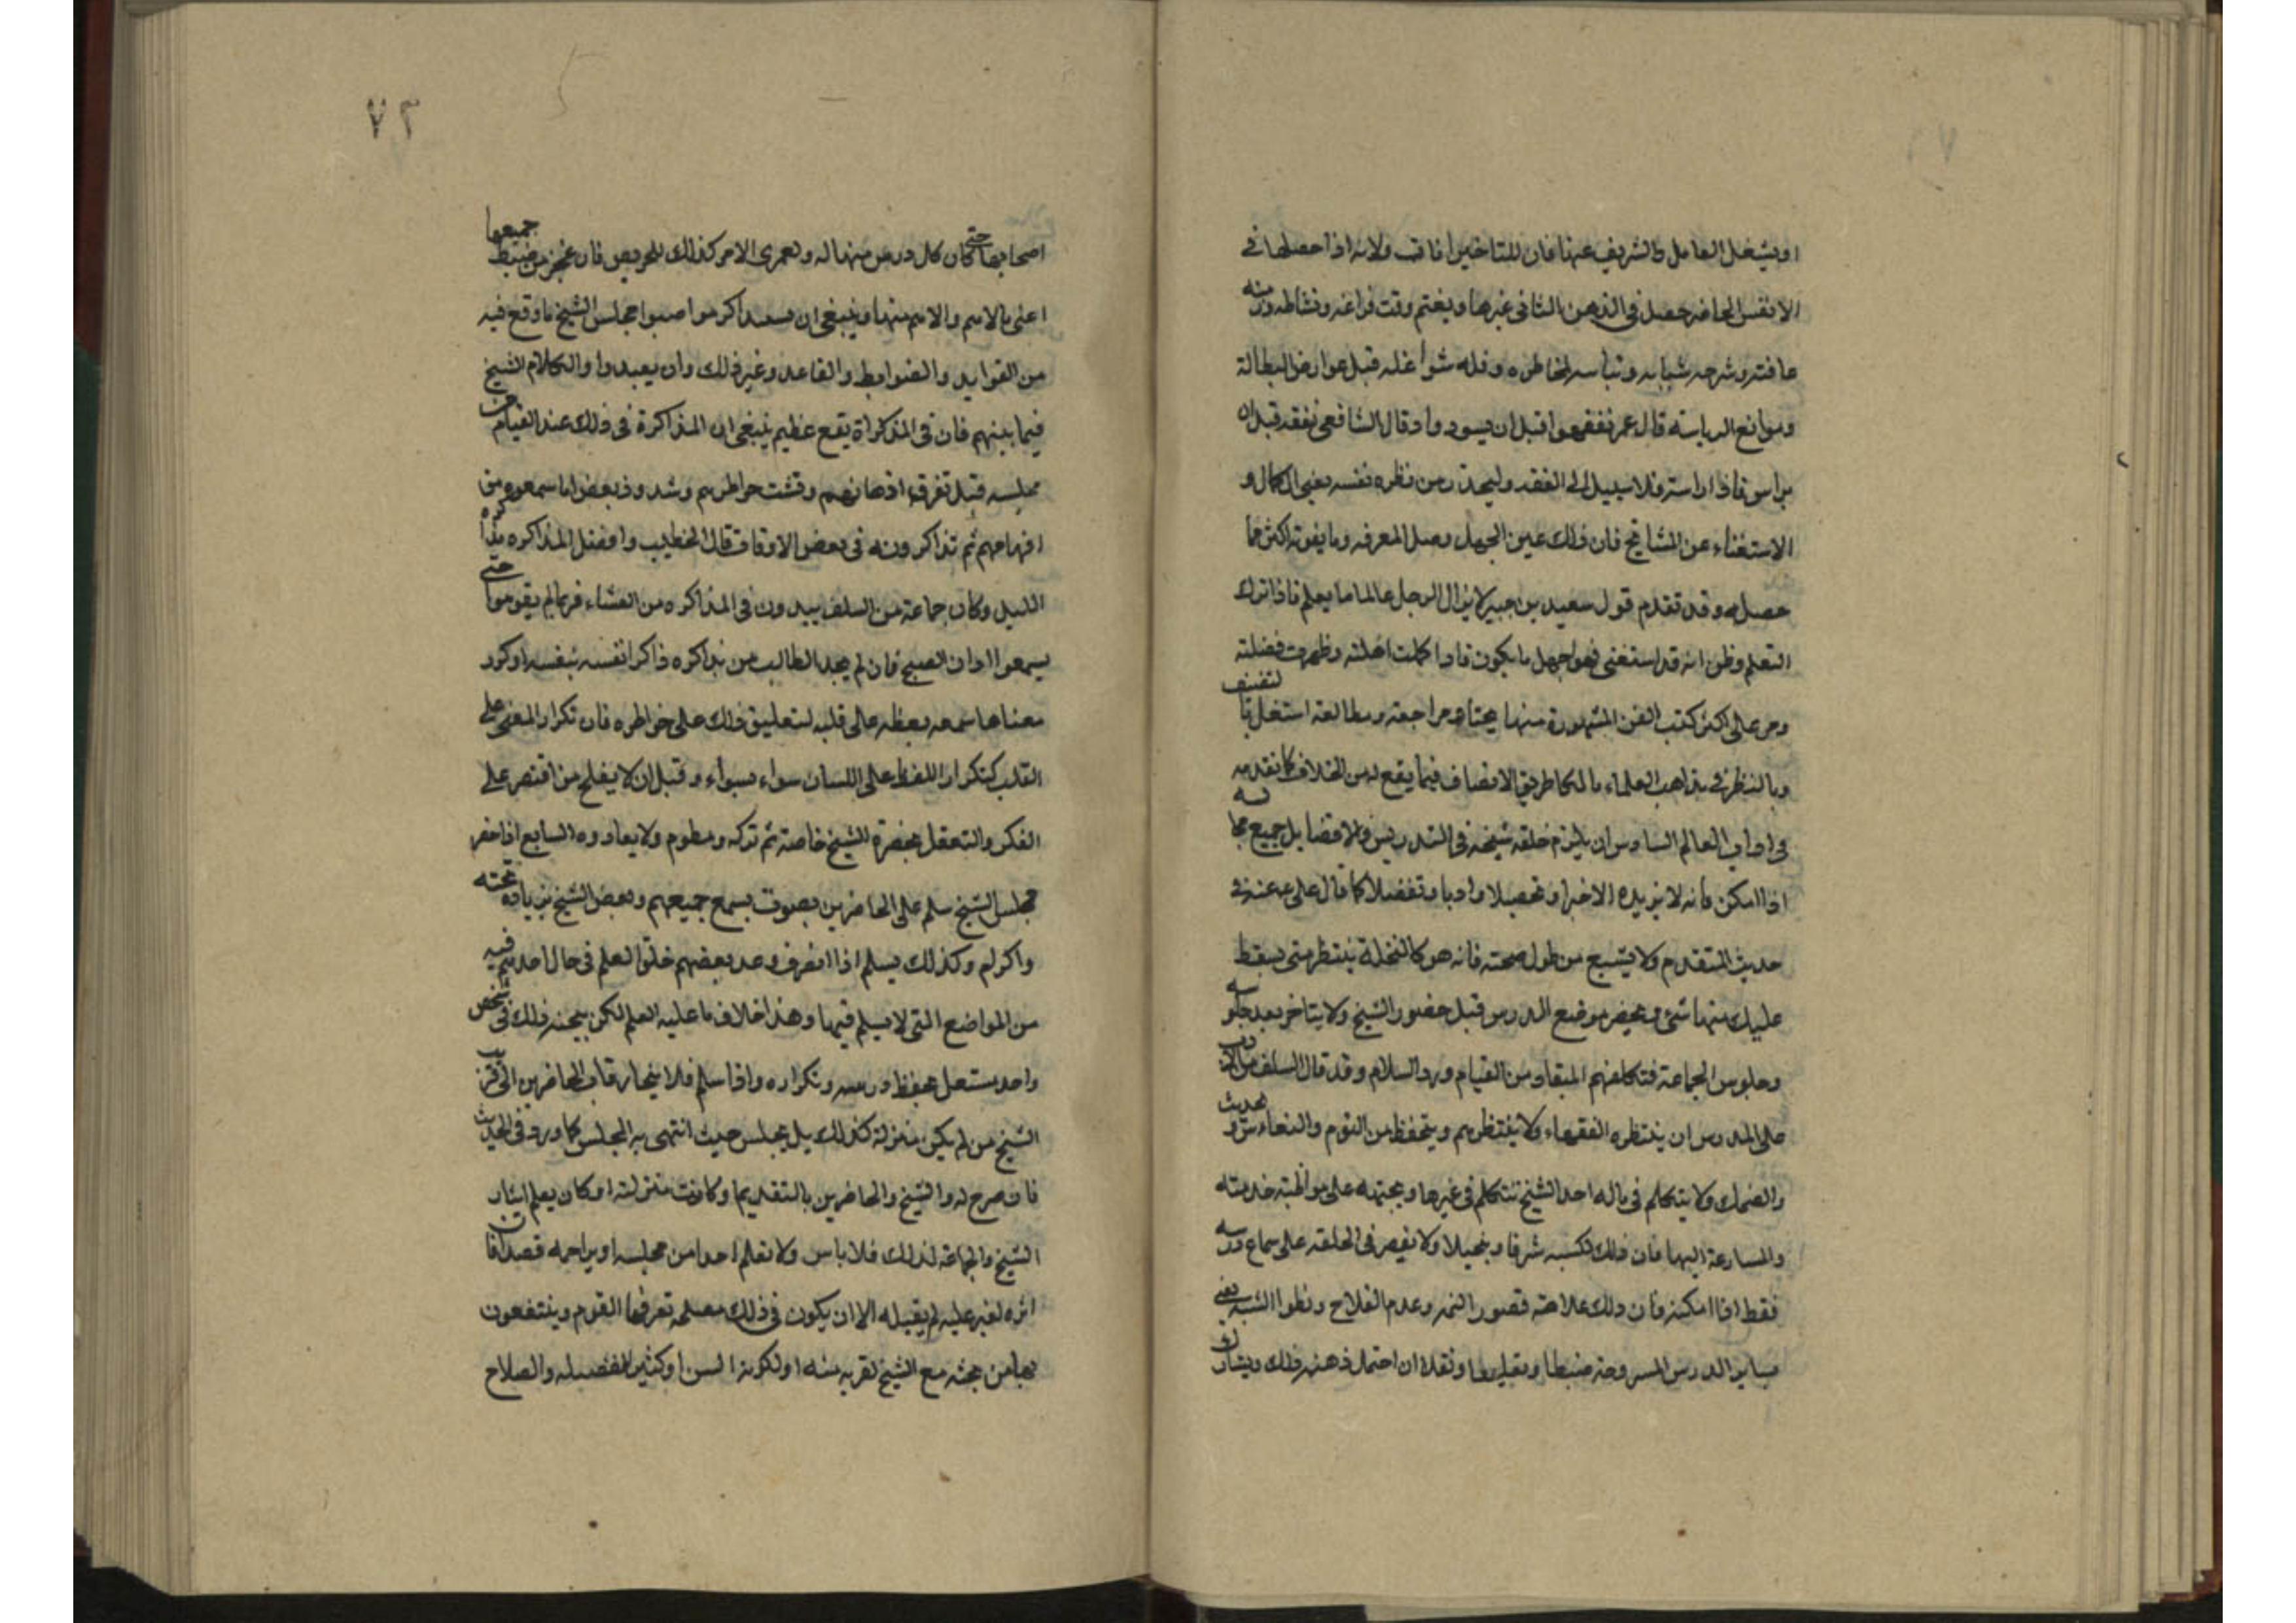 او يشغل العامل والشريف عنها فان للتاخير افات ولانه اذا حصلها في
الانفس الحاضر حصل في الذهن الثاني غيرها ويغتم وقت فراغه ونشاطه وزمنه
عافته وشرحه شبابه ونباسه لخاطره وقله شواغله قبل عوارض البطالة
وموانع الرياسته قال عمر تفقهوا قبل ان يسودوا وقال الشافعي تفقه قبل ان
يراس فاذا راست فلا سبيل الى الفقه وليحذر من نظره نفسه بعين الكمال و
الاستغناء عن المشايخ فان ذلك عين الجهل وصل المعرفه وما يفوته اكثر مما
حصله وقد تقدم قول سعيد بن جبير لا يزال الرجل عالما ما يعلم فاذا ترك
التعلم وظن انه قد استغنى فهو اجهل ما يكون فاذا كملت اهلته وظهرت فضلته
ومر على اكثر كتب الفن المشهورة منها بحثا ومراجعة ومطالعة اشتغل بالتصنيف
وبالنظر في مذاهب العلماء مالكا طريق الانصاف فيما يقع له من الخلاف كما تقدمه
في اداب العالم السادس ان يلزم حلقه شيخه في التدريس والاقضايل جميع مجالسه
اذا امكن فانه لا يزيده الا خيرا وتحصيلا وادبا وتفضلا كما قال على عه عنه في
حديث المتقدم ولا يشبع من طول صحبته فانه هو كالنخلة ينتظر متى يسقط
عليك منها شئ ويحضر موضع الدرس قبل حضور الشيخ ولا يتاخر بعد جلوسه
وجلوس الجماعة فتكلفهم المبقاد من القيام ورد السلام وقد قال السلف من الادب
على المدرس ان ينتظره الفقهاء ولا ينتظرهم ويتحفظ من النوم والنعاس والتحديث
والضحك ولا يتكلم في ماله احد الشيخ تتكلم في غيرها ويجتهد على مواظبة خدمته
والمسارعة اليها فان ذلك تكسبه شرفا وبتجيلا ولا يقصر في الحلقه على سماع درسه
فقط اذا امكنه فان ذلك علامة قصور النمه وعدم الفلاح وبطوا التنبه بعنى
بساير الدروس المسروحة ضبطا وتعليقا ونقلا ان احتمل ذهنه ذلك ويشارك
٧٢
اصحابها حتى كان كل درس منها له ولعمرى الامر كذلك للحريص فان عجز من ضبط جميعها
اعنى بالاهم والاهم منها وينبغي ان يتذاكر مواصبوا مجلس الشيخ ما وقع فيه
من الفوايد والضوابط والقاعد وغير ذلك وان يعيدوا والكلام الشيخ
فيما بينهم فان في المذكراة يقع عظيم ينبغي ان المذاكرة في ذلك عند القيام من
مجلسه قبل تفرقة اذهانهم وتشتت خواطرهم وشذوذ بعض ما سمعوه من
افهامهم ثم تذاكرونه في بعض الاوقات قال الخطيب وافضل المذاكره مذاكره
الليل وكان جماعة من السلف يبدون في المذاكره من العشاء فربما لم يقوموا حتى
يسمعوا اذان الصبح فان لم يجد الطالب من يذاكره ذاكر نفسه بنفسه وكرر
معنا ما سمعه بعظه على قلبه لتعليق ذلك على خواطره فان تكرار المعنى على
القلب كتكرار اللفظ على اللسان سواء بسواء وقبل ان لا يفلح من اقتصر على
الفكر والتعقل بحضرة الشيخ خاصة ثم تركه ومطوم ولا يعاوده السابع اذا حضر
مجلس الشيخ سلم على الحاضرين بصوت يسمع جميعهم وبعض الشيخ بزيادة تحته
واكرام وكذلك يسلم اذا انصرف وعد بعضهم حلق العلم في حال احدهم فيه
من المواضع التي لا يسلم فيها وهذا خلاف ما عليه العلم لكن يبحنه ذلك في شخص
واحد مشتعل بحفظ درسه وتكراره واذا سلم فلا يتحار رقاب الحاضرين الى قرب
الشيخ من لم يكن منزلة كذلك بل يجلس حيث انتهى به المجلس كما ورد في الحديث
فان صرح له والشيخ والحاضرين بالتقديم او كانت منزلته او كان يعلم ايثار
الشيخ والجماعة لذلك فلا باس ولا تعلم احدا من مجلسه او يزاحمه قصدا فان
اثره لغير عليه لم يقبله الا ان يكون في ذلك مصلحه تعرفها القوم وينتفعون
بها من بحثه مع الشيخ لقربه منه او لكونه السن او كثير الفضيله والصلاح